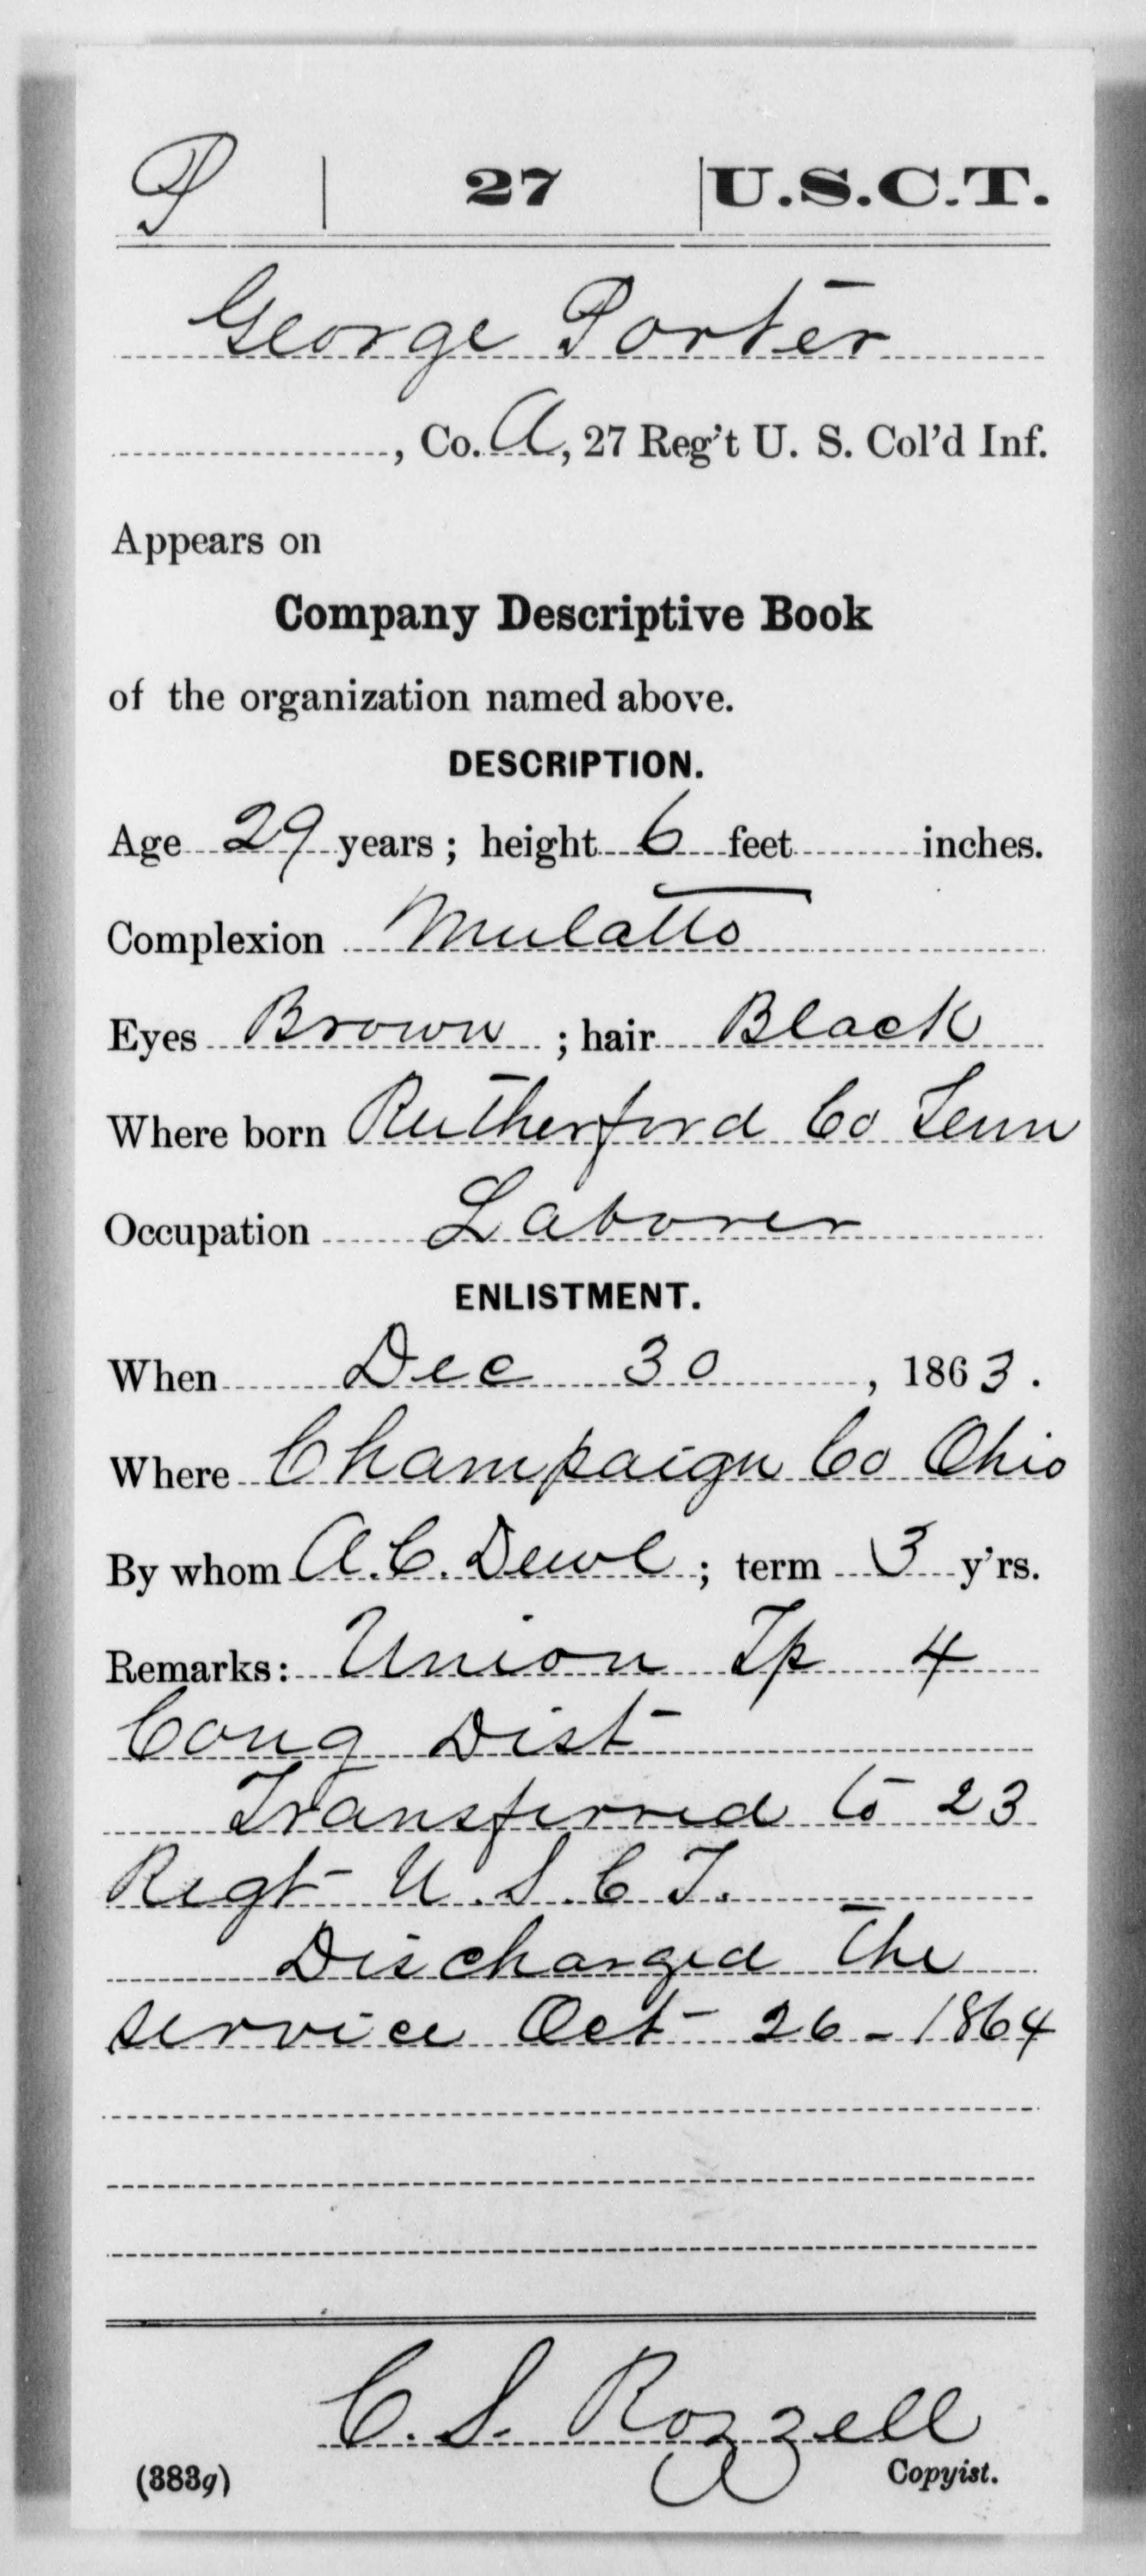 P | 27 | U.S.C.T.
George Porter
, Co. A, 27 Reg't U. S. Col'd Inf.
Appears on
Company Descriptive Book
of the organization named above.
DESCRIPTION.
Age 29 years; height 6 feet inches.
Complexion Mulatto
Eyes Brown; hair Black
Where born Rutherford Co Tenn
Occupation Laborer
ENLISTMENT.
When Dec 30, 1863.
Where Champaign Co Ohio
By whom A.C. Deuel; term 3 y'rs.
Remarks: Union Tp 4
Cong Dist
Transferred to 23
Regt U.S.C.T.
Discharged the
service Oct 26-1864
C. S. Rozzell
(383g) Copyist.